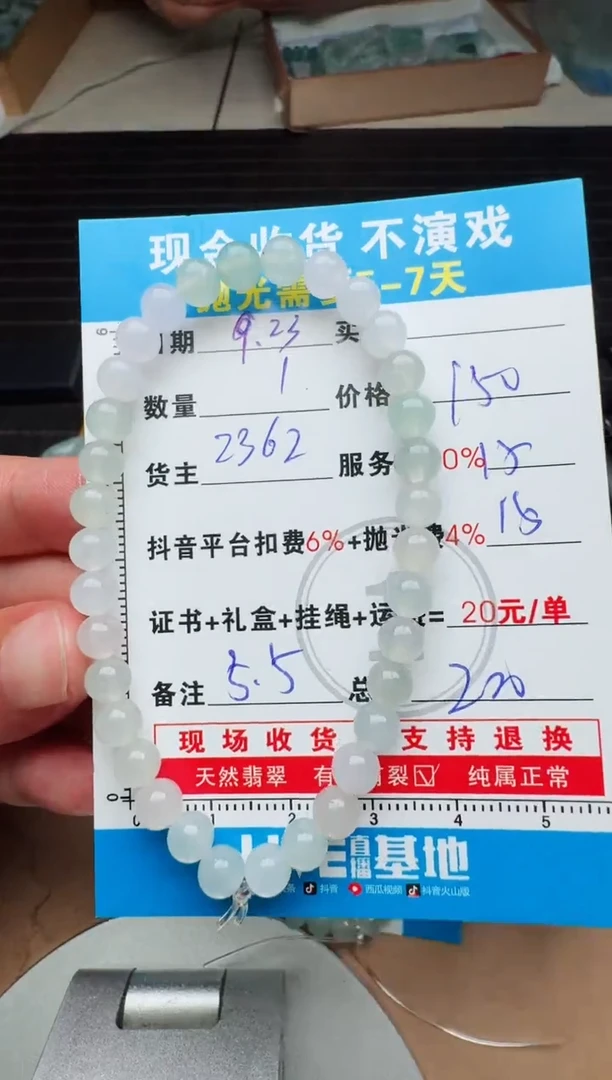 现金收货 不演戏
抛光需 5-7天
日期 9.23 买
数量 1 价格 150
货主 2362 服务 0% 15
抖音平台扣费6%+抛光费4% 15
证书+礼盒+挂绳+运费= 20元/单
备注 5.5 总 200
现场收货 支持退换
天然翡翠 有 裂☑ 纯属正常
0 1 2 3 4 5
直播基地
抖音 西瓜视频 抖音火山版